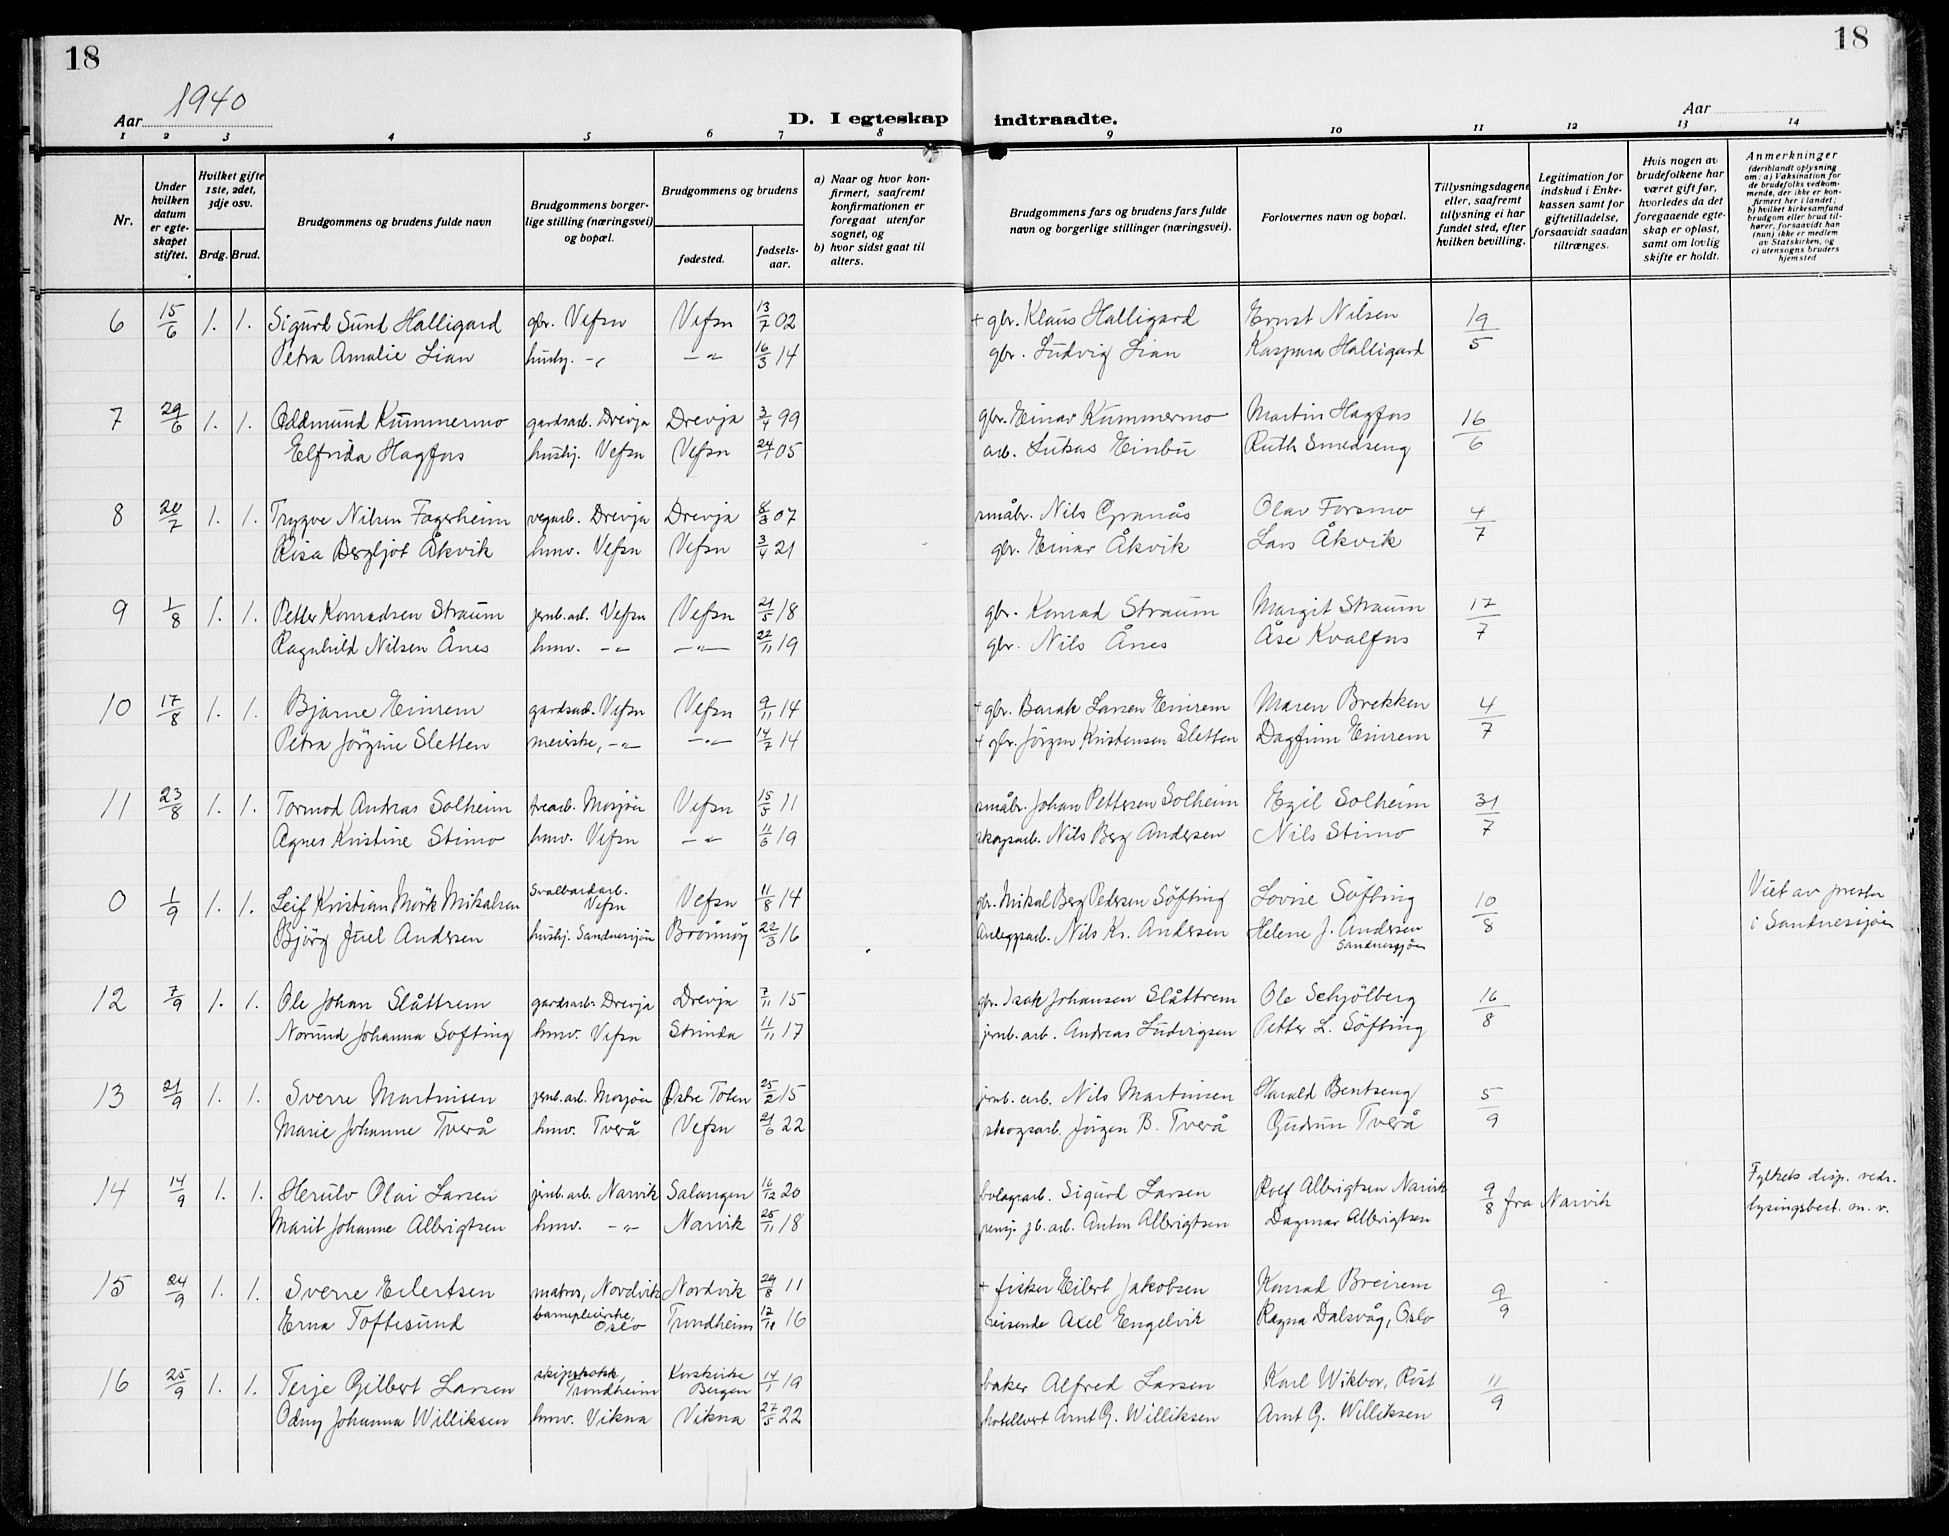 18
18
Aar 1940
D. I egteskap indtraadte.
Aar
1 2 3 4 5 6 7 8 9 10 11 12 13 14
Nr.
Under hvilken datum er egteskapet stiftet.
Hvilket gifte 1ste, 2det, 3dje osv.
Brdg. Brud.
Brudgommens og brudens fulde navn
Brudgommens borgerlige stilling (næringsvei) og bopæl.
Brudgommens og brudens
fødested.
fødselsaar.
a) Naar og hvor konfirmert, saafremt konfirmationen er foregaat utenfor sognet, og
b) hvor sidst gaat til alters.
Brudgommens fars og brudens fars fulde navn og borgerlige stillinger (næringsvei).
Forlovernes navn og bopæl.
Tillysningsdagene eller, saafremt tillysning ei har fundet sted, efter hvilken bevilling.
Legitimation for indskud i Enkekassen samt for giftetilladelse, forsaavidt saadan tiltrænges.
Hvis nogen av brudefolkene har været gift før, hvorledes da det foregaaende egteskap er opløst, samt om lovlig skifte er holdt.
Anmerkninger (deriblandt oplysning om: a) Vaksination for de brudefolks vedkommende, der ikke er konfirmert her i landet; b) hvilket kirkesamfund brudgom eller brud tilhører, forsaavidt han (hun) ikke er medlem av Statskirken, og c) utensogns bruders hjemsted
6 15/6 1. 1. Sigurd Sund Halligard gbr. Vefsn Vefsn 13/7 02 + gbr. Klaus Halligard Ernst Nilsen 19/5
Petra Amalie Lian hushj. -"- -"- 16/3 14 gbr. Ludvig Lian Kaspara Halligard
7 29/6 1. 1. Oddmund Kummermo gardsarb. Drevja Drevja 3/4 99 gbr. Einar Kummermo Martin Hagfors 16/6
Elfrida Hagfors hushj. Vefsn Vefsn 24/1 05 arb. Lukas Einbu Ruth Smedseng
8 20/7 1. 1. Trygve Nilsen Fagerheim vegarb. Drevja Drevja 8/3 07 småbr. Nils Granås Olav Forsmo 4/7
Risa Bergljot Åkvik hmv. Vefsn Vefsn 3/4 21 gbr. Einar Åkvik Lars Åkvik
9 1/8 1. 1. Petter Konradsen Straum jernb.arb. Vefsn Vefsn 21/5 18 gbr. Konrad Straum Margit Straum 17/7
Ragnhild Nilsen Ånes hmv. -"- -"- 22/11 19 gbr. Nils Ånes Åse Kvalfors
10 17/8 1. 1. Bjarne Einrem gardsarb. Vefsn Vefsn 9/11 14 + gbr. Barak Larsen Einrem Maren Brekken 4/7
Petra Jörgine Sletten meierske, -"- -"- 14/7 14 + gbr. Jörgen Kristensen Sletten Dagfinn Einrem
11 23/8 1. 1. Tormod Andreas Solheim trearb. Mosjøen Vefsn 15/5 11 småbr. Johan Pettersen Solheim Egil Solheim 31/7
Agnes Kristine Stimo hmv. Vefsn -"- 11/6 19 skogsarb. Nils Berg Andersen Nils Stimo
0 1/9 1. 1. Leif Kristian Mörk Mikalsen Svalbardarb. Vefsn Vefsn 11/8 14 gbr. Mikal Berg Pedersen Söfting Lovise Söfting 10/8 Viet av presten
Bjørg Juel Andersen hushj. Sandnessjøen Brønnøy 22/3 16 Anleggsarb. Nils Kr. Andersen Helene J. Andersen Sandnessjøen i Sandnessjøen
12 7/9 1. 1. Ole Johan Slåttrem gardsarb. Drevja Drevja 7/11 15 gbr. Isak Johansen Slåttrem Ole Schjölberg 16/8
Norund Johanna Softing hmv. Vefsn Strinda 11/11 17 jernb.arb. Andreas Ludvigsen Petter L. Söfting
13 21/9 1. 1. Sverre Martinsen jernb.arb. Mosjøen Østre Toten 25/2 15 jernb.arb. Nils Martinsen Harald Bentseng 5/9
Marie Johanne Tverå hmv. Tverå Vefsn 21/6 22 skogsarb. Jörgen B. Tverå Gudrun Tverå
14 14/9 1. 1. Herulv Olai Larsen jernb.arb. Narvik Salangen 16/12 20 bolagsarb. Sigurd Larsen Rolf Albrigtsen Narvik 9/8 fra Narvik Fylkets disp. vedr.
Marit Johanne Albrigtsen hmv. -"- Narvik 25/11 18 pensj. jb.arb. Anton Albrigtsen Dagmar Albrigtsen lysingsbest. m. v.
15 24/9 1. 1. Sverre Eilertsen matros, Nordvik Nordvik 29/8 11 + fisker Eilert Jakobsen Konrad Breirem 9/9
Erna Toftesund barnepleierske, Oslo Trondheim 12/10 16 reisende Axel Engelvik Ragna Dalsvåg, Oslo
16 25/9 1. 1. Terje Gilbert Larsen skipskokk, Trondheim Korskirke Bergen 14/1 19 baker Alfred Larsen Karl Wikbor, Röst 11/9
Odny Johanna Williksen hmv. Vikna Vikna 27/5 22 hotellvert Arnt G. Williksen Arnt G. Williksen